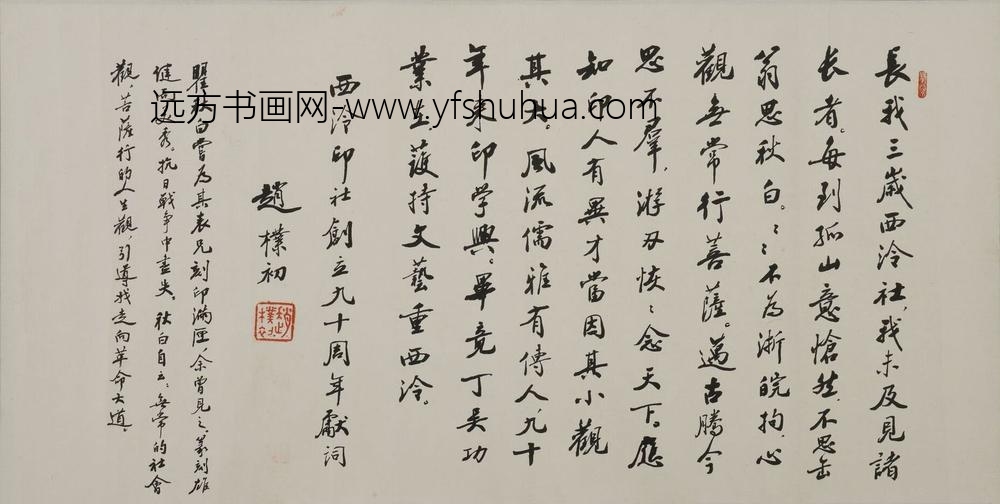 長我三歲西泠社，我未及見諸
长者。每到孤山意愴然，不思缶
翁思秋白。〻不為浙皖拘，心
觀無常行菩薩。邁古騰今
思不羣，游刃恢〻念天下。應
知印人有異才當因其小觀
其大。風流儒雅有傳人，九十
年來印学興。畢竟丁吳功
業在，護持文藝重西泠。
西泠印社創立九十周年獻詞
趙樸初
趙樸初
瞿秋白嘗為其表兄刻印滿匣，余曾見之，篆刻雄
健秀。抗日戰爭中盡失。秋白自云：無常的社會
觀，菩薩行的人生觀，引導我走向革命大道。
远方书画网-www.yfshuhua.com